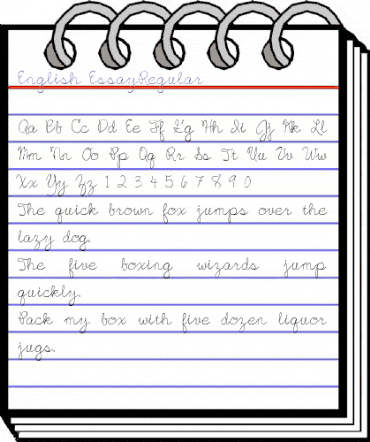 English EssayRegular
Aa Bb Cc Dd Ee Ff Gg Hh Ii Jj Kk Ll
Mm Nn Oo Pp Qq Rr Ss Tt Uu Vv Ww
Xx Yy Zz 1 2 3 4 5 6 7 8 9 0
The quick brown fox jumps over the
lazy dog.
The five boxing wizards jump
quickly.
Pack my box with five dozen liquor
jugs.